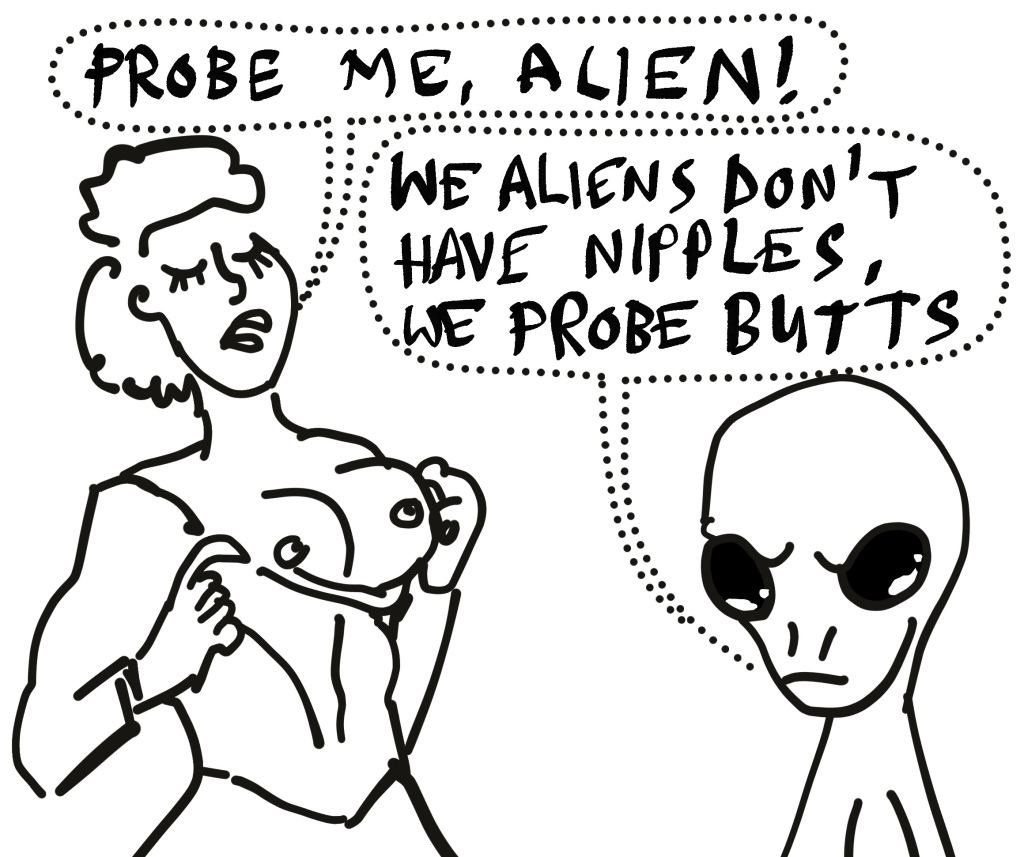 PROBE ME, ALIEN!
WE ALIENS DON'T
HAVE NIPPLES,
WE PROBE BUTTS